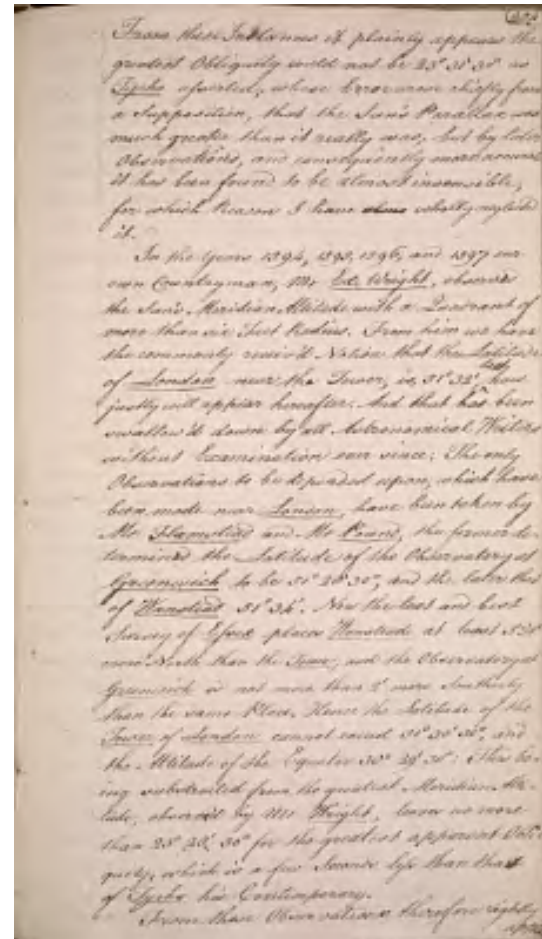 From these Instances it plainly appears the
greatest Obliquity could not be 23° 31' 30" as
Tycho asserted, whose Error arose chiefly from
a Supposition, that the Sun's Parallax was
much greater than it really was, but by later
Observations, and consequently more accurate
it has been found to be almost insensible,
for which Reason I have wholly neglected
it.
In the Years 1594, 1595, 1596, and 1597 our
own Countryman, Mr Ed. Wright, observed
the Sun's Meridian Altitude with a Quadrant of
more than six Feet Radius. From him we have
the commonly receiv'd Notion that the Latitude
of London near the Tower, is, 51° 32', how
justly will appear hereafter. And that has been
swallow'd down by all Astronomical Writers
without Examination ever since; The only
Observations to be depended upon, which have
been made near London, have been taken by
Mr Flamsteed and Mr Pound, the former de-
termined the Latitude of the Observatory at
Greenwich to be 51° 28' 30", and the later that
of Wansted 51° 34'. Now the last and best
Survey of Essex places Wansted at least
more North than the Tower, and the Observatory at
Greenwich is not more than 2' more Southerly
than the same Place. Hence the Latitude of the
Tower of London cannot exceed 51° 30' 30", and
the Altitude of the Equator 38° 29' 30": This be-
ing substracted from the greatest Meridian Alti-
tude, observ'd by Mr Wright, leaves no more
than 23° 30" for the greatest apparent Obli-
quity, which is a few Seconds less than that
of Tycho his Contemporary.
From these Observations therefore rightly